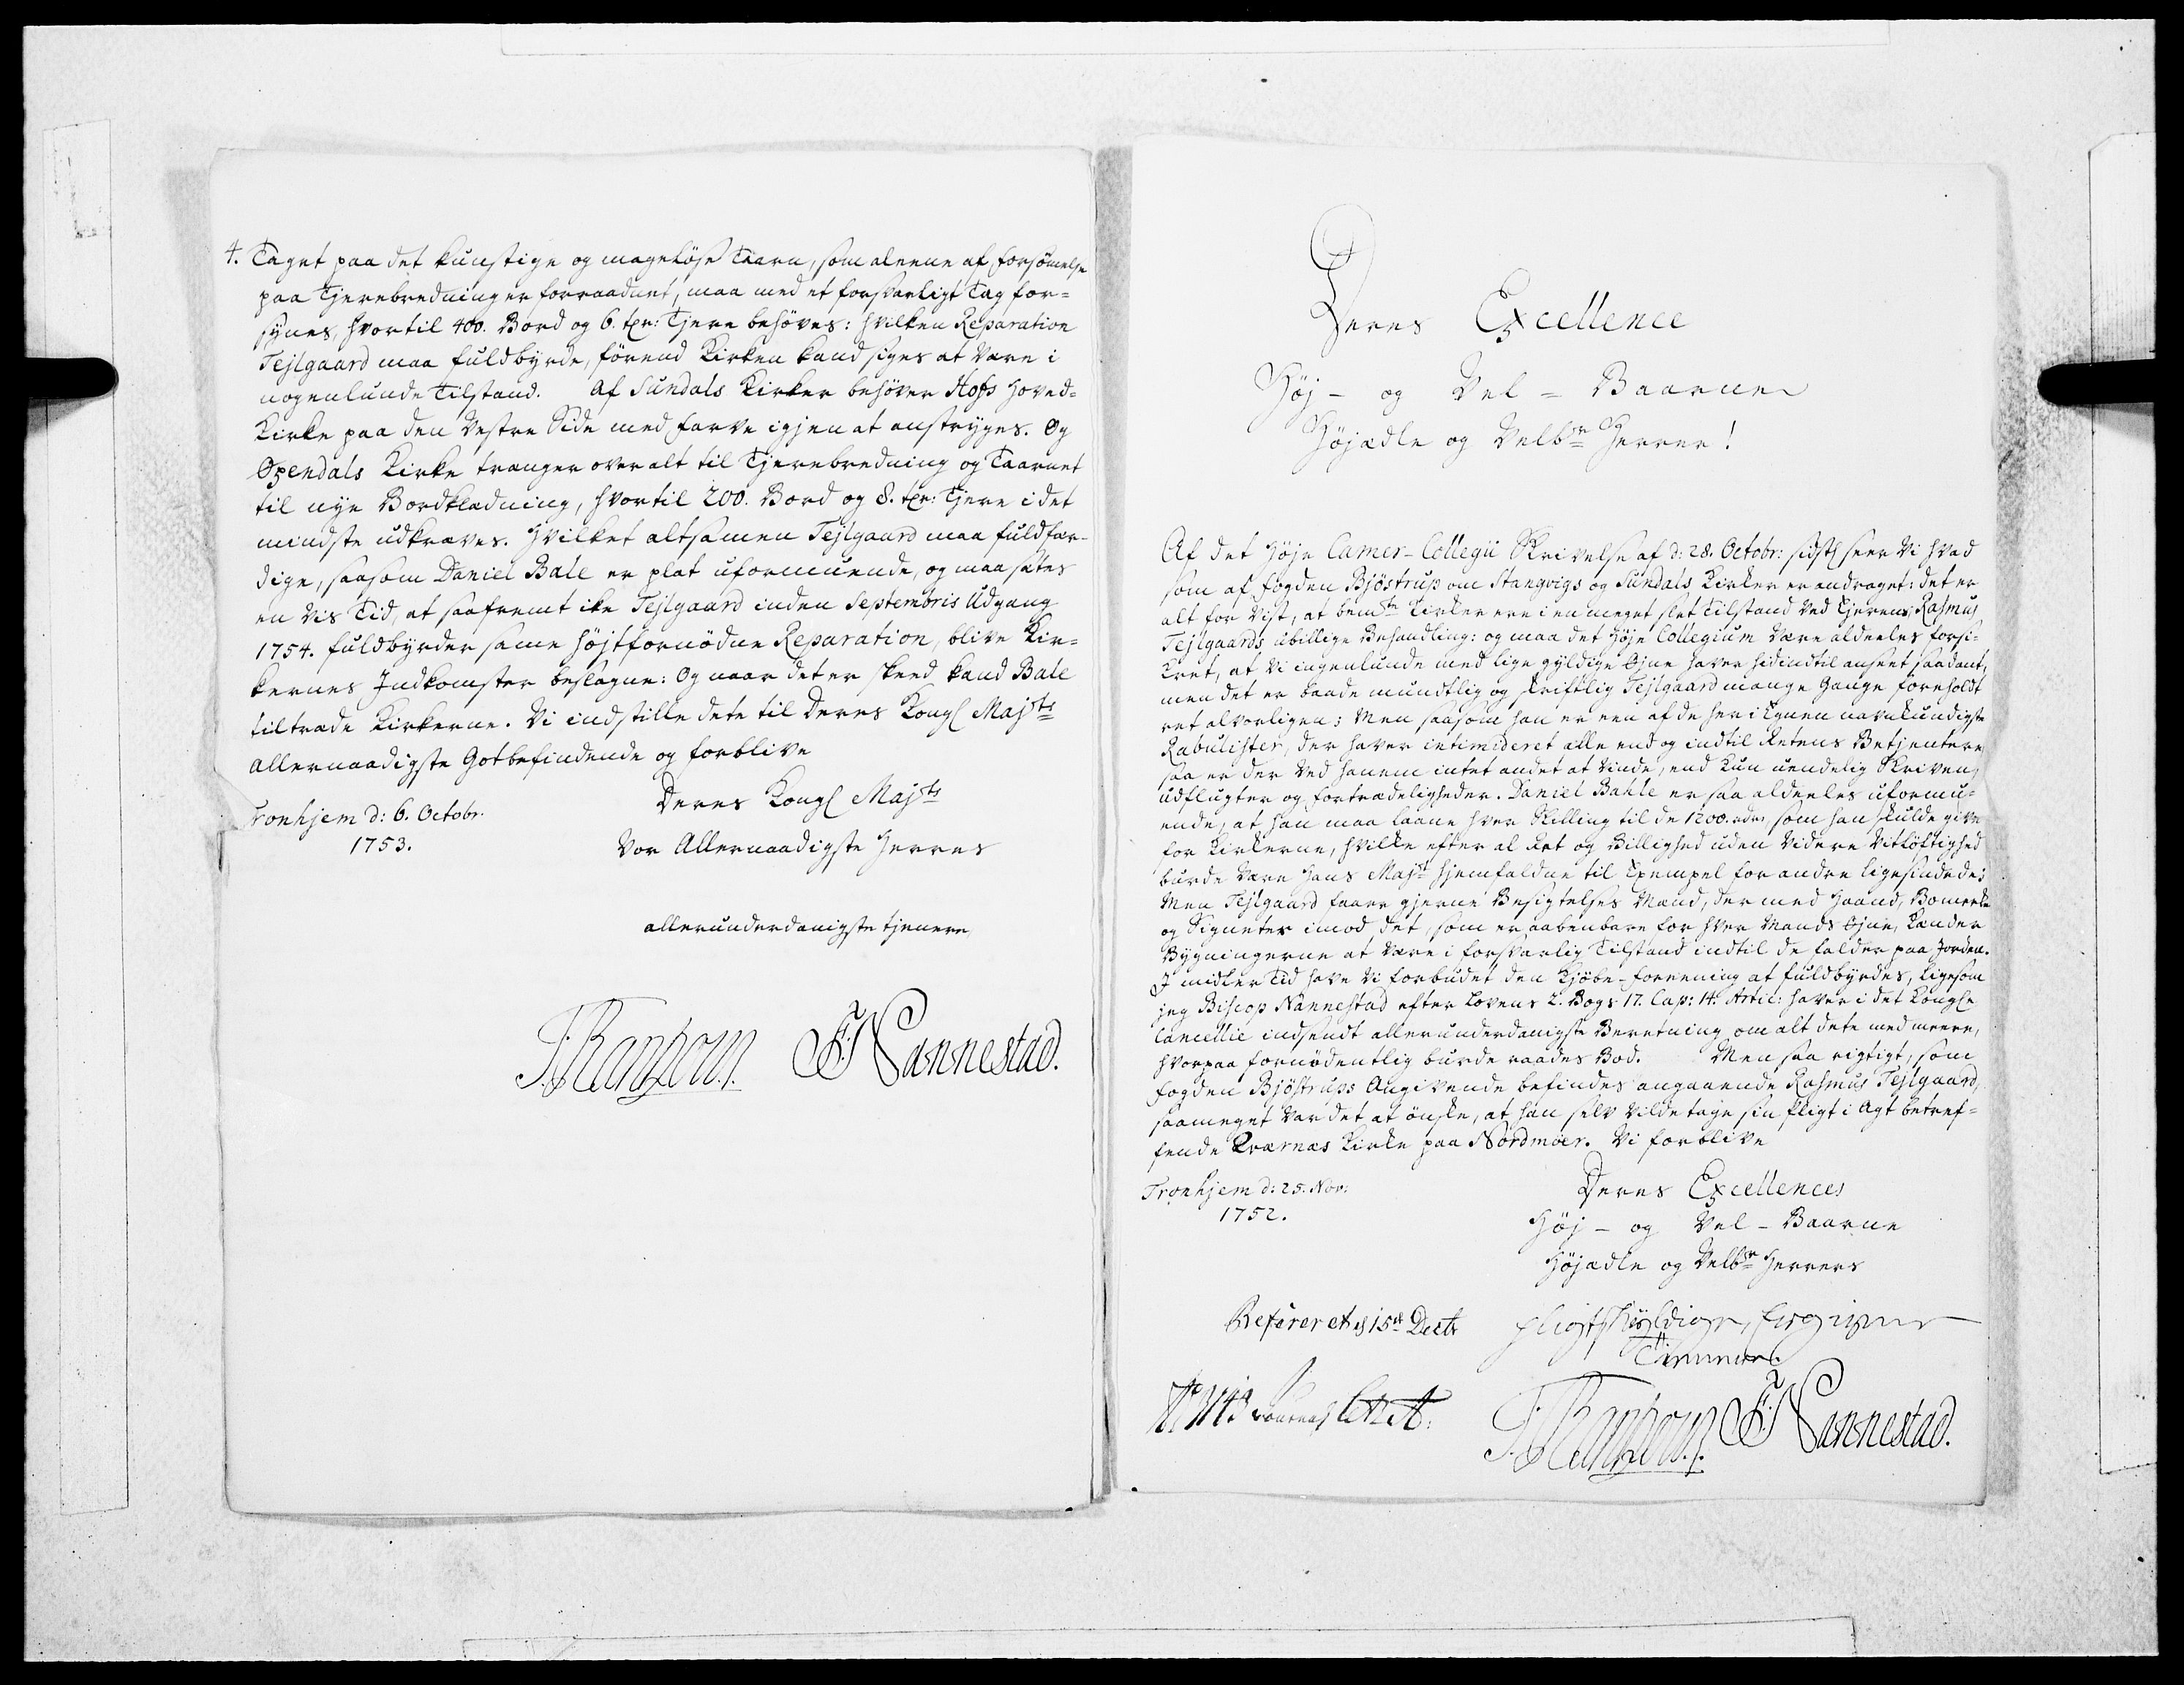 4. Taget paa det kunstige og mageløse Taarn, som aleene af forsømelse
paa Tjerebredning er forraadnet, maa med et forsvarligt Tag for=
synes, hvortil 400. Bord og 6. tør: Tjere behøves: hvilken Reparation
Tejlgaard maa fuldbyrde, førend Kirken kand siges at være i
nogenlunde Tilstand. Af Sundals Kirker behøver Hofs Hoved=
Kirke paa den Vestre Side med farve igjen at anstryges. Og
Øxendals Kirke trænger over alt til Tjerebredning og Taarnet
til nye Bordklædning, hvortil 200. Bord og 8. tør: Tjere i det
mindste udkræves. Hvilket altsamen Tejlgaard maa fuldfær-
dige, saasom Daniel Bale er plat uformuende, og maa sætes
en vis Tid, at saafremt ike Tejlgaard inden Septembris Udgang
1754. fuldbyrder same højstfornødne Reparation, blive Kir=
kernes Indkomster beslagne: Og naar det er skeed kand Bale
tiltræde Kirkerne. Vi indstille dete til Deres Kongl Majts
allernaadigste Gotbefindende og forblive
Deres Kongl Majts
Tronhjem d: 6. Octobr.
1753.
Vor Allernaadigste Herres
allerunderdanigste tjenere,
F Nannestad.
Deres Excellence
Høj- og Vel-Baarne
Højædle og Velbr Herrer!
Af det Høje Camer-Collegii Skrivelse af d: 28. Octobr: sidstl seer Vi hvad
som af fogden Bjöstrup om Stangvigs og Sundals Kirker er andraget: det er
alt for vist, at bemte Kirker ere i en meget slet Tilstand ved Ejerens, Rasmus
Tejlgaards, ubillige Behandling: og maa det Høje Collegium være aldeeles forsi=
kret, at Vi ingenlunde med lige gyldige Øjne haver hidindtil anseet saadant,
men det er baade mundtlig og skriftlig Tejlgaard mange Gange foreholdt
ret alvorligen: Men saasom han er een af de her i Egnen navnkundigste
Rabulister, der haver intimideret alle end og indtil Retens Betjentere
saa er der ved hanem intet andet at vinde, end kun uendelig Skriven,
udflugter og fortrædeligheder. Daniel Bahle er saa aldeeles uformu=
ende, at han maa laane hver Skilling til de 1200. rdr., som han skulde give
for Kirkerne, hvilke efter al Ret og Billighed uden videre Vitløftighed
burde være Hans Majst hjemfaldne til Exempel for andre ligesindede:
Men Tejlgaard faaer gjerne Besigtelses Mænd, der med Haand, Bomerke
og Signeter imod det, som er aabenbare for hver Mands Øjne, kjender
Bygningerne at være i forsvarlig Tilstand indtil de falder paa Jorden.
I midler Tid have Vi forbudet den Kjøbe-forening at fuldbyrdes, ligesom
jeg Biscop Nannestad efter Lovens 2. Bogs 17. Cap: 14. Artic: haver i det Kongle
Cancellie indsendt allerunderdanigste Beretning om alt dete med meere,
hvorpaa fornødentlig burde raades Bod. Men saa rigtigt, som
fogden Bjöstrups Angivende befindes angaaende Rasmus Tejlgaard,
saameget var det at ønske, at han selv vilde tage sin Pligt i Agt betref=
fende Qværnæs Kirke paa Nordmöer. Vi forblive
Tronhjem d: 25. Nov:
1752.
Deres Excellences
Høj- og Vel-Baarne
Højædle og Velbr Herrers
Refereret d 15de Decbr
Pligtskyldige, Ergivne
Tiennere
F Nannestad.